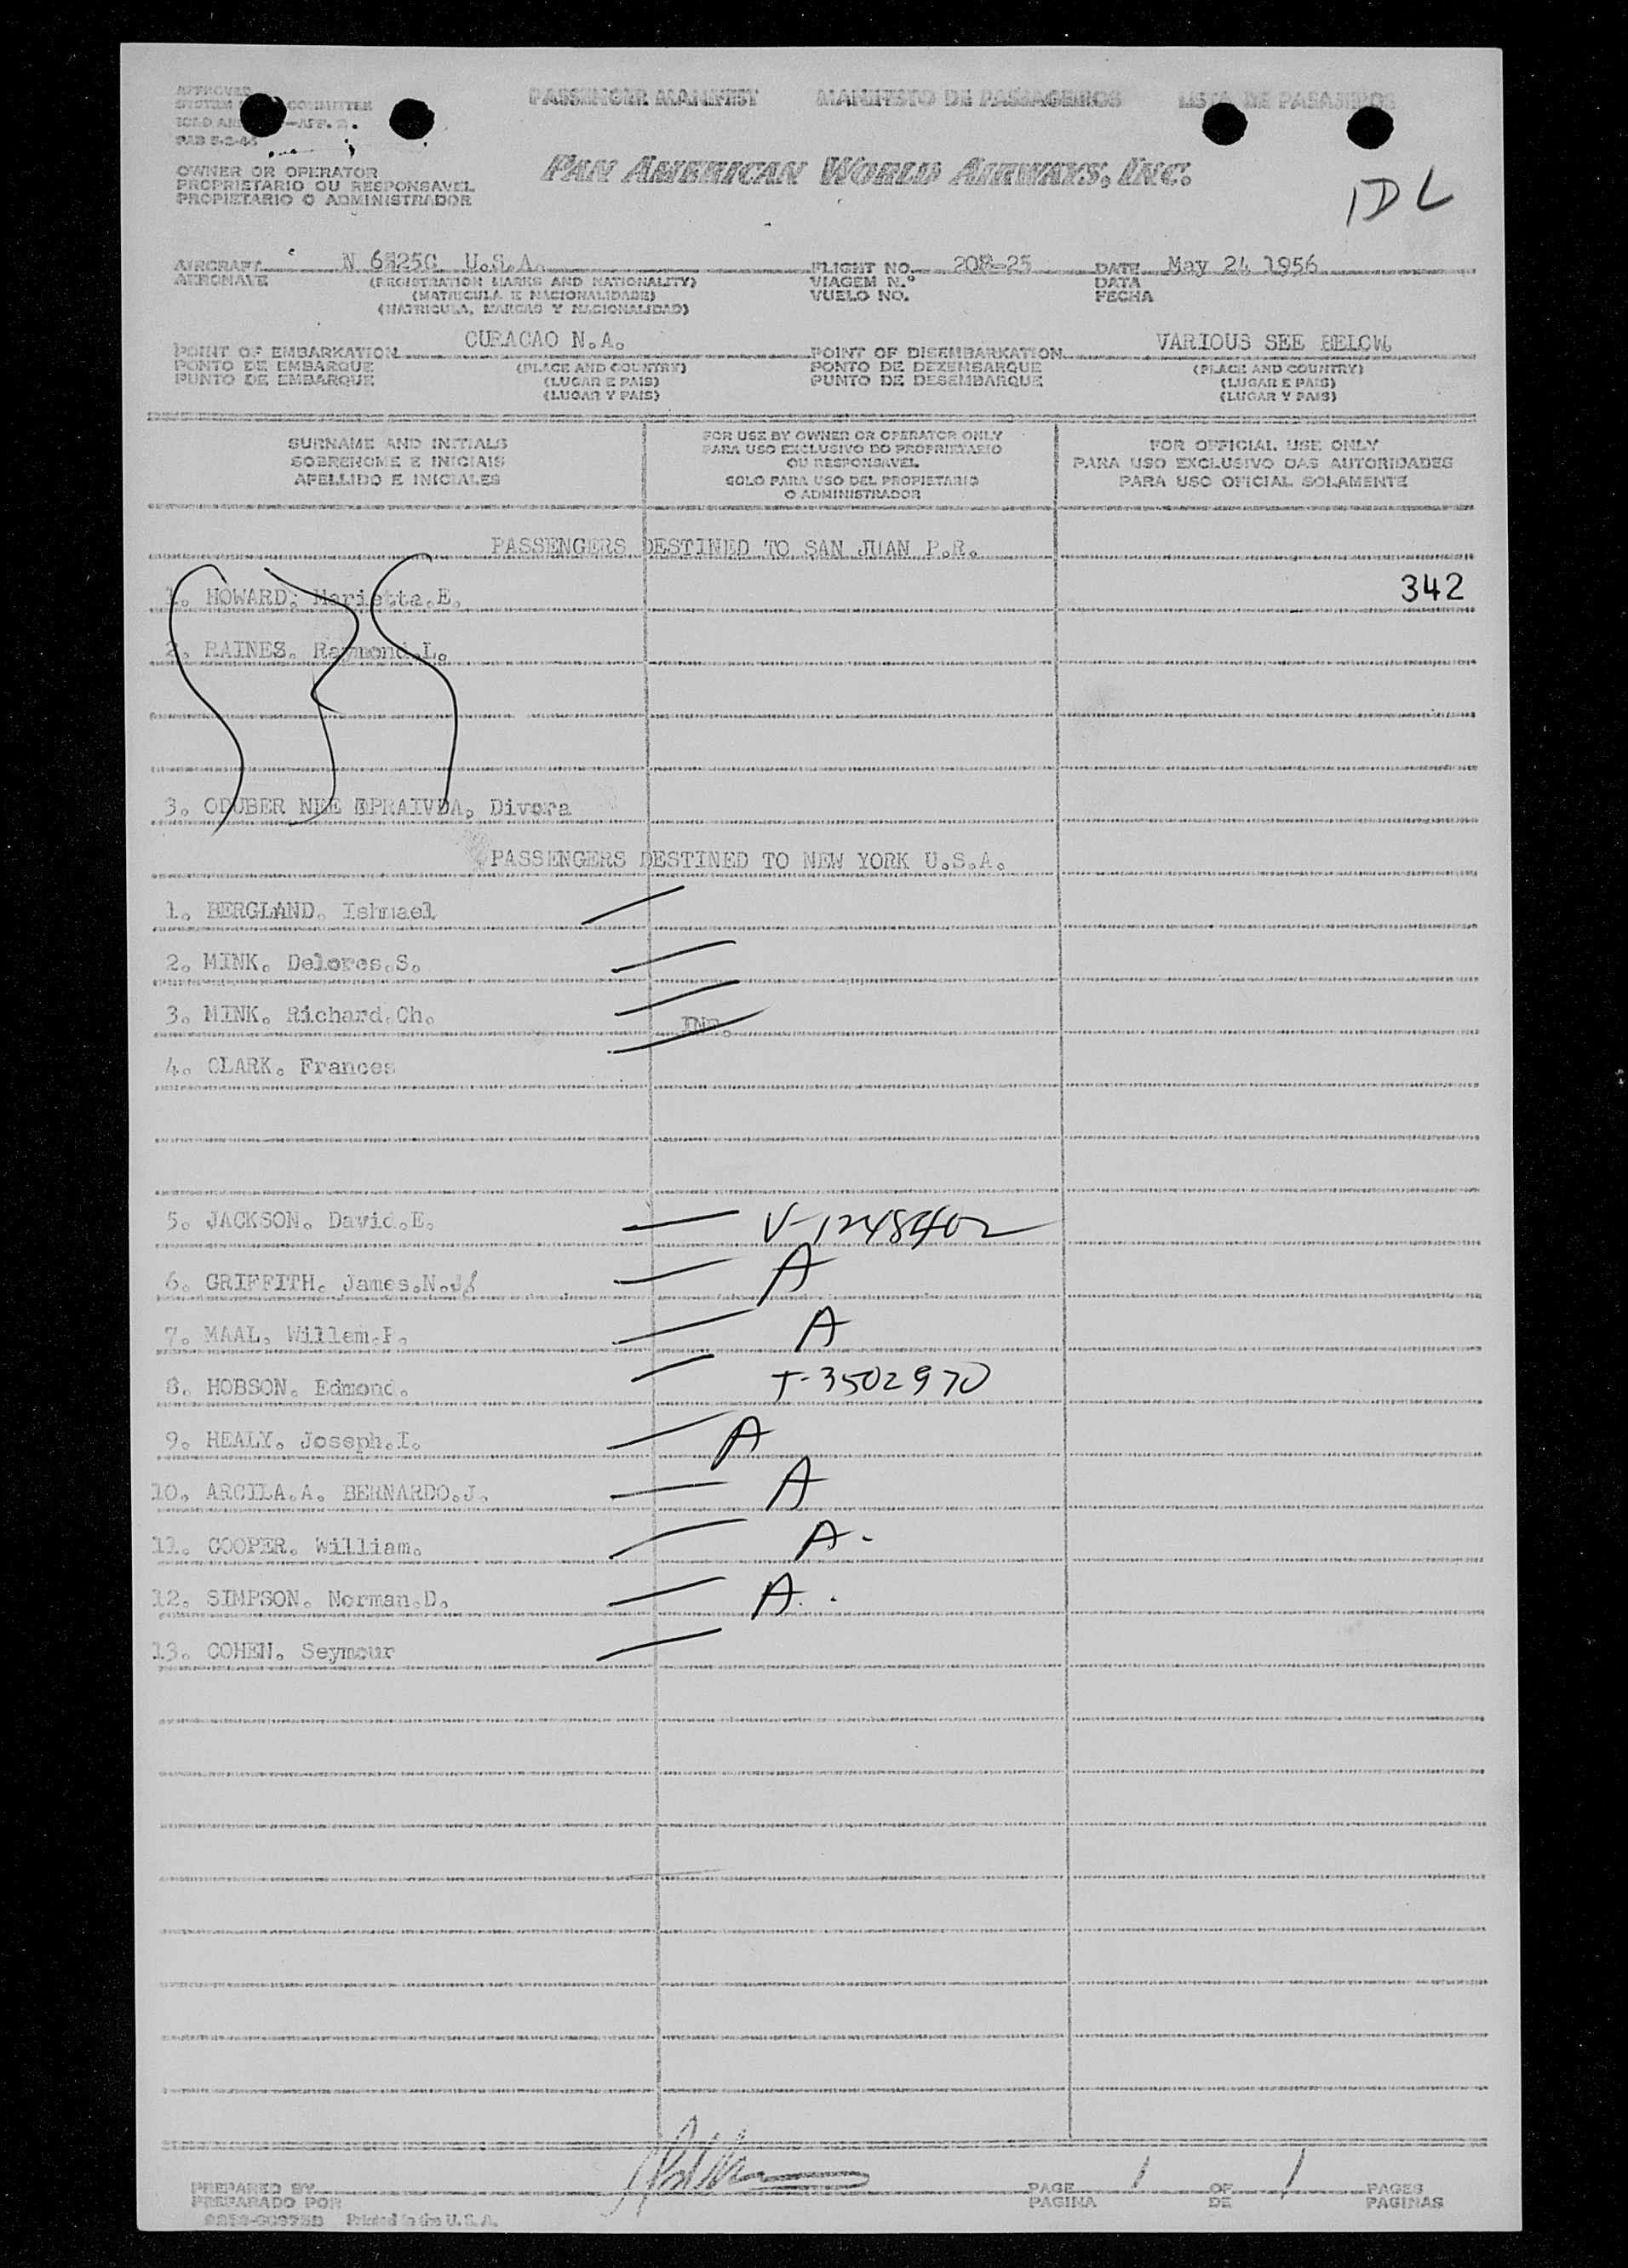 APPROVED
SYSTEM COMMITTEE
ICAO —APP.
PAB 5-2-46
PASSENGER MANIFEST MANIFESTO DE PASSAGEIROS LISTA DE PASAJEROS
OWNER OR OPERATOR
PROPRIETARIO OU RESPONSAVEL
PROPIETARIO O ADMINISTRADOR
PAN AMERICAN WORLD AIRWAYS, INC.
IDL
AIRCRAFT U.S.A. FLIGHT NO. DATE May 24 1956
AERONAVE (REGISTRATION MARKS AND NATIONALITY) VIAGEM N.º DATA
(MATRICULA E NACIONALIDADE) VUELO NO. FECHA
(MATRICULA, MARCAS Y NACIONALIDAD)
POINT OF EMBARKATION CURACAO N.A. POINT OF DISEMBARKATION VARIOUS SEE BELOW
PONTO DE EMBARQUE (PLACE AND COUNTRY) PONTO DE DEZEMBARQUE (PLACE AND COUNTRY)
PUNTO DE EMBARQUE (LUGAR E PAIS) PUNTO DE DESEMBARQUE (LUGAR E PAIS)
(LUGAR Y PAIS) (LUGAR Y PAIS)
SURNAME AND INITIALS
SOBRENOME E INICIAIS
APELLIDO E INICIALES
FOR USE BY OWNER OR OPERATOR ONLY
PARA USO EXCLUSIVO DO PROPRIETARIO
OU RESPONSAVEL
SOLO PARA USO DEL PROPIETARIO
O ADMINISTRADOR
FOR OFFICIAL USE ONLY
PARA USO EXCLUSIVO DAS AUTORIDADES
PARA USO OFICIAL SOLAMENTE
PASSENGERS DESTINED TO SAN JUAN P.R.
1. HOWARD. Marietta.E. 342
2. RAINES. Raymond.L.
3. ODUBER NEE Divora
PASSENGERS DESTINED TO NEW YORK U.S.A.
1. BERGLAND. Ishmael
2. MINK. Delores.S.
3. MINK. Richard.Ch. INF.
4. CLARK. Frances
5. JACKSON. David.E. V-1248402
6. GRIFFITH. James.N. A
7. MAAL. Willem.P. A
8. HOBSON. Edmond. T-3502970
9. HEALY. Joseph.I. A
10. ARCILA.A. BERNARDO.J. A
11. COOPER. William. A-
12. SIMPSON. Norman.D. A.
13. COHEN. Seymour
PREPARED BY PAGE 1 OF 1 PAGES
PREPARADO POR PAGINA DE PAGINAS
Printed in the U.S.A.